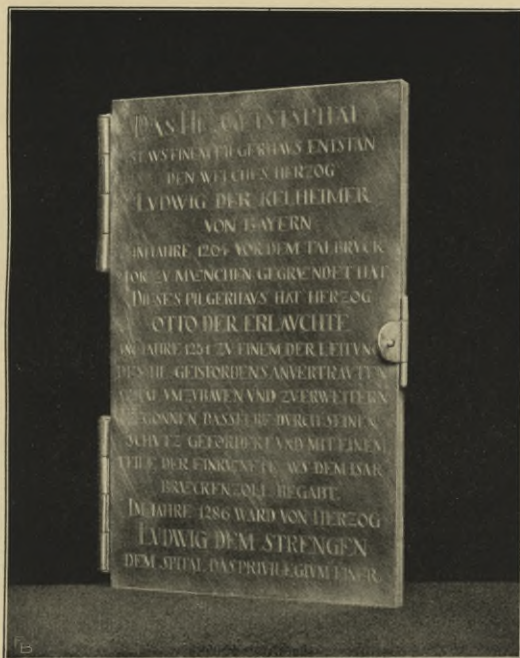 DAS HL. GEISTSPITAL
IST AVS EINEM PILGERHAVS ENTSTAN
DEN WELCHES HERZOG
LVDWIG DER KELHEIMER
VON BAYERN
IM JAHRE 1204 VOR DEM TALBRVCK
TOR ZV MVENCHEN GEGRVENDET HAT
DIESES PILGERHAVS HAT HERZOG
OTTO DER ERLAVCHTE
IM JAHRE 1251 ZV EINEM DER LEITVNG
DES HL. GEISTORDENS ANVERTRAVTEN
VMZVBAVEN VND ZVERWEITERN
BEGONNEN DASSELBE DVRCH SEINEN
SCHVTZ GEFÖRDERT VND MIT EINEM
TEILE DER EINKVENFTE AVS DEM ISAR
BRVCKENZOLL BEGABT.
IM JAHRE 1286 WARD VON HERZOG
LVDWIG DEM STRENGEN
DEM SPITAL DAS PRIVILEGIVM EINER